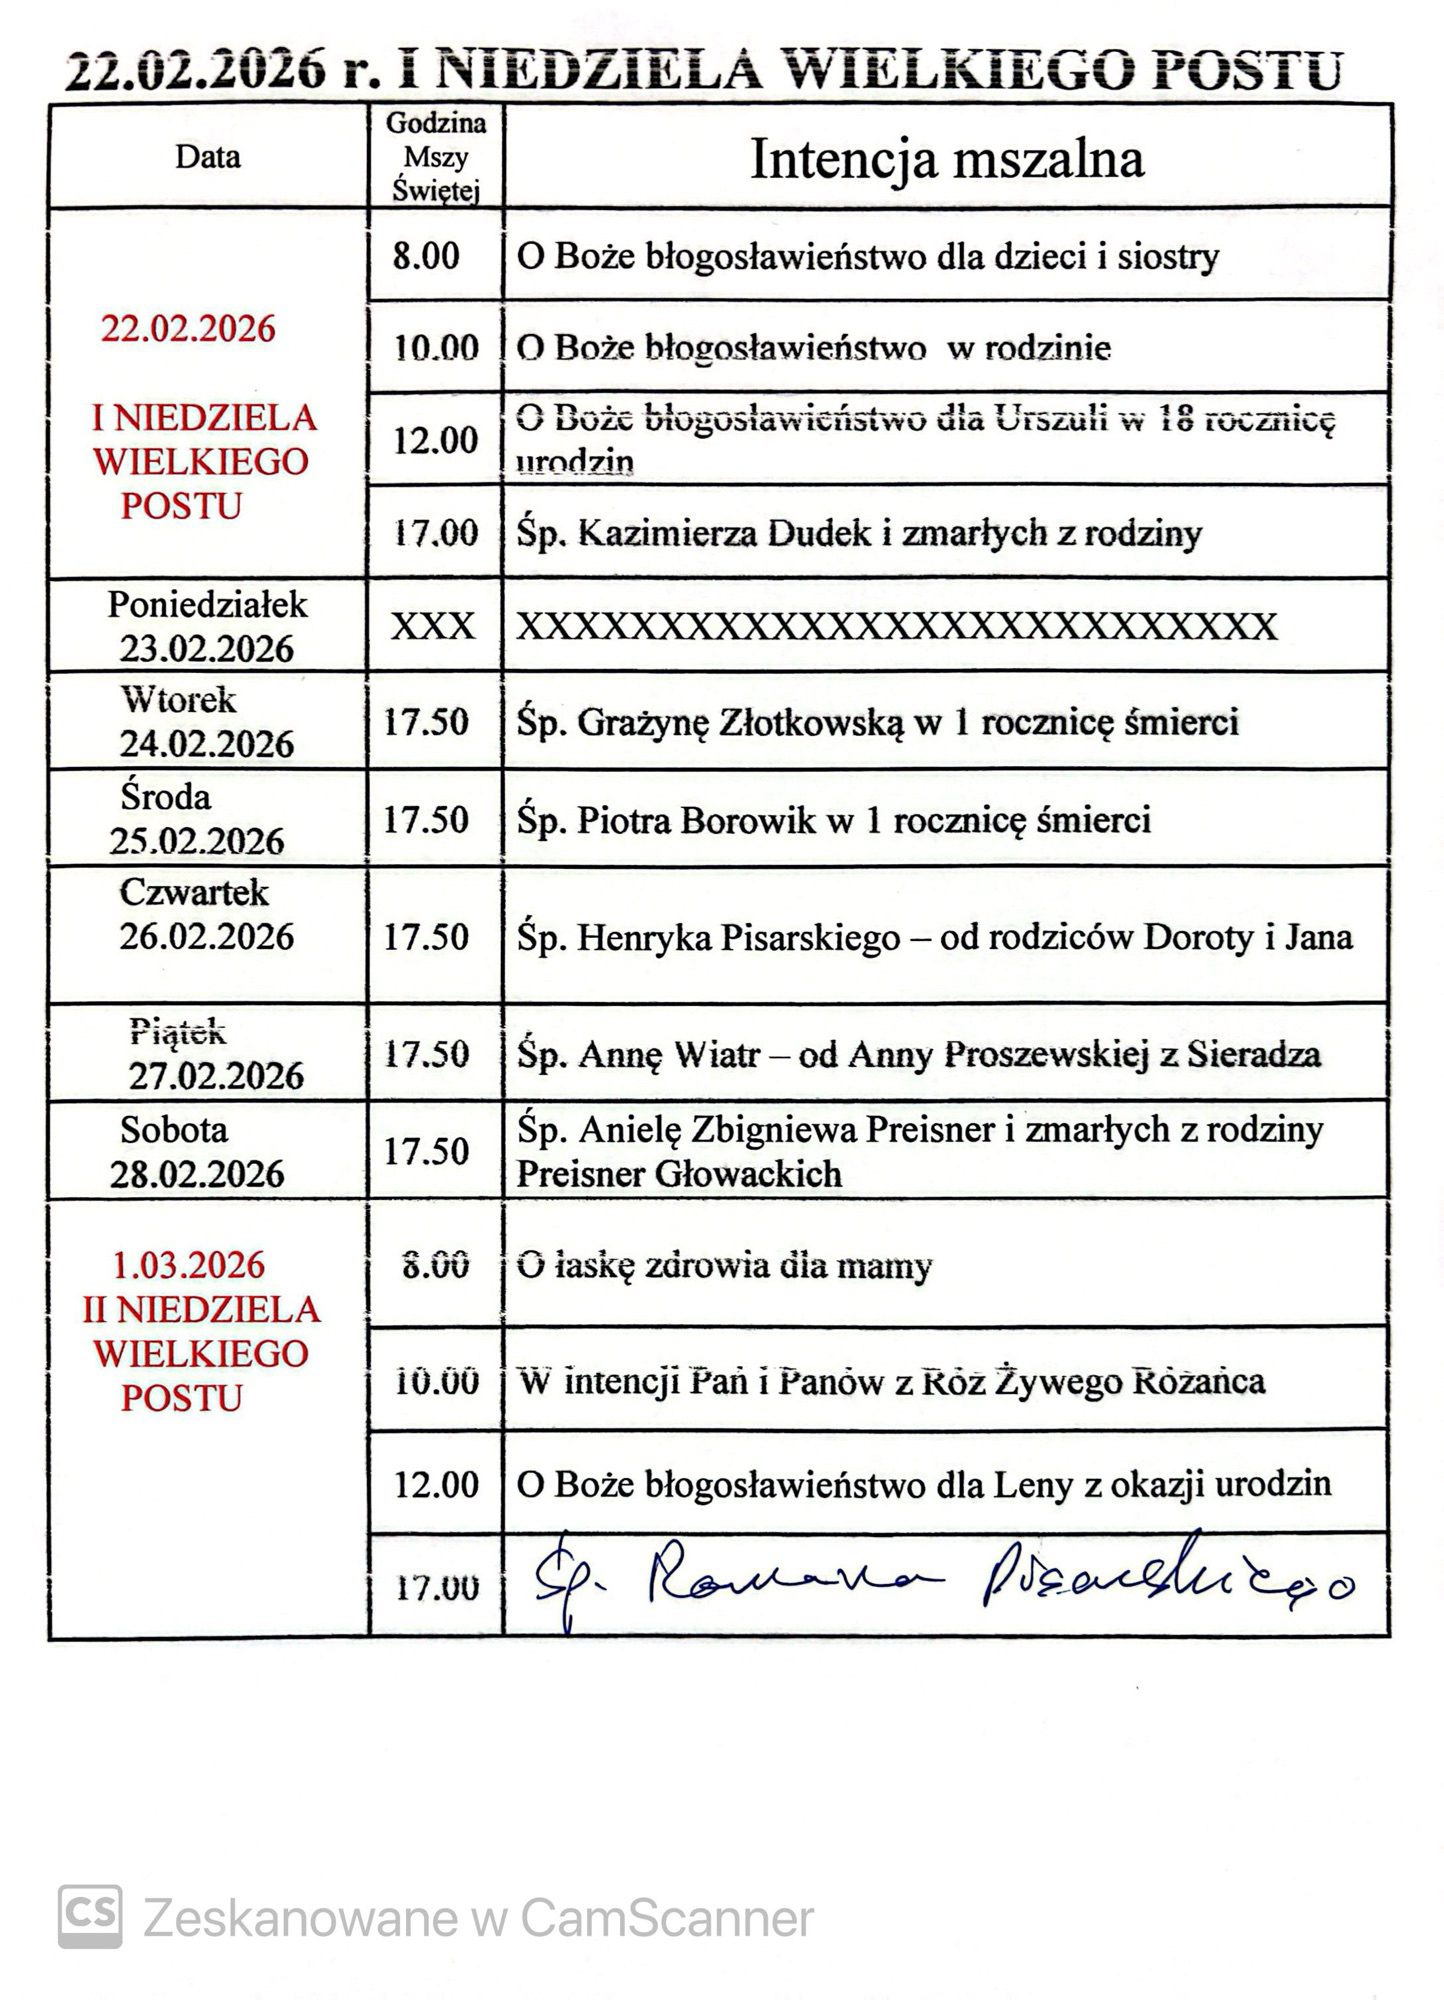 22.02.2026 r. I NIEDZIELA WIELKIEGO POSTU
Data
Godzina
Mszy
Świętej
Intencja mszalna
22.02.2026
I NIEDZIELA
WIELKIEGO
POSTU
8.00
O Boże błogosławieństwo dla dzieci i siostry
10.00
O Boże błogosławieństwo w rodzinie
12.00
O Boże błogosławieństwo dla Urszuli w 18 rocznicę
urodzin
17.00
Śp. Kazimierza Dudek i zmarłych z rodziny
Poniedziałek
23.02.2026
XXX
XXXXXXXXXXXXXXXXXXXXXXXXXXX
Wtorek
24.02.2026
17.50
Śp. Grażynę Złotkowską w 1 rocznicę śmierci
Środa
25.02.2026
17.50
Śp. Piotra Borowik w 1 rocznicę śmierci
Czwartek
26.02.2026
17.50
Śp. Henryka Pisarskiego – od rodziców Doroty i Jana
Piątek
27.02.2026
17.50
Śp. Annę Wiatr – od Anny Proszewskiej z Sieradza
Sobota
28.02.2026
17.50
Śp. Anielę Zbigniewa Preisner i zmarłych z rodziny
Preisner Głowackich
1.03.2026
II NIEDZIELA
WIELKIEGO
POSTU
8.00
O łaskę zdrowia dla mamy
10.00
W intencji Pań i Panów z Róż Żywego Różańca
12.00
O Boże błogosławieństwo dla Leny z okazji urodzin
17.00
Śp. Romana Pisarskiego
CS Zeskanowane w CamScanner